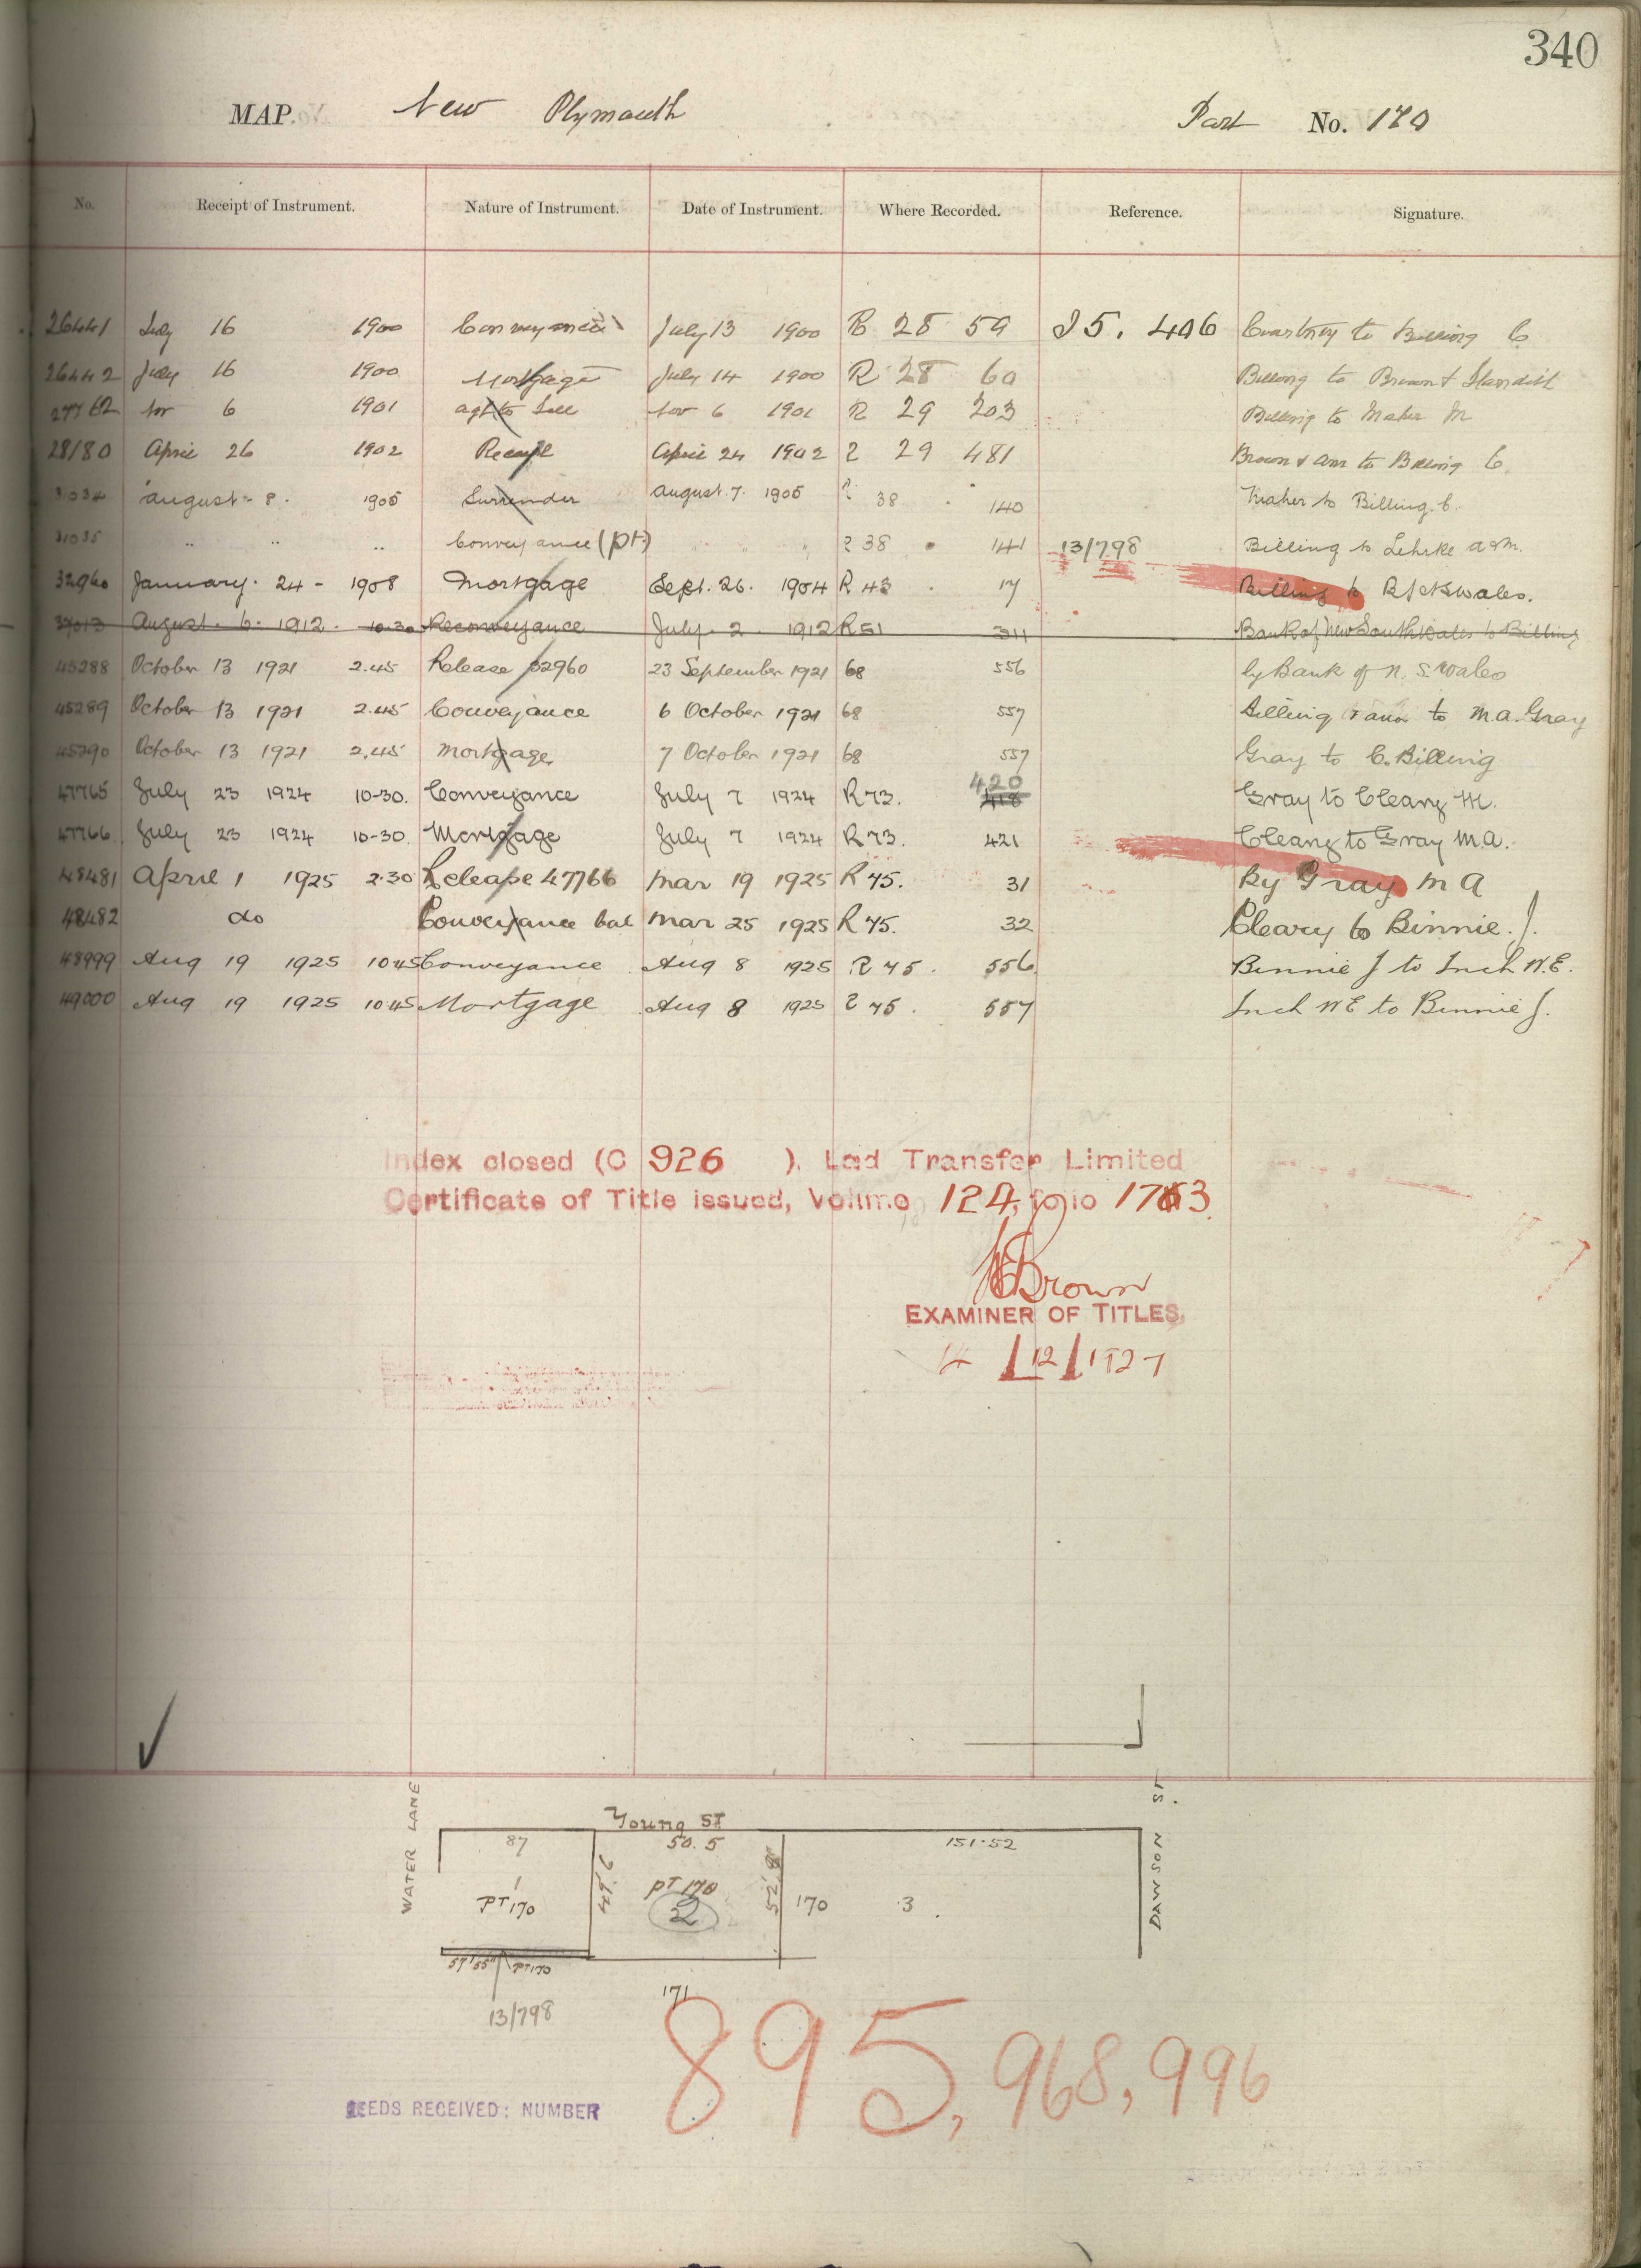 340
MAP. New Plymouth Part No. 170
No. Receipt of Instrument. Nature of Instrument. Date of Instrument. Where Recorded. Reference. Signature.
26441 July 16 1900 Conveyance July 13 1900 R 28 59 I 5. 406 Courtney to Billing C
26442 July 16 1900 Mortgage July 14 1900 R 28 60 Billing to Brown & Standish
27762 Nov 6 1901 agt to Sell Nov 6 1901 R 29 203 Billing to Maher M
28180 April 26 1902 Receipt April 24 1902 R 29 481 Brown & anr to Billing C.
31034 August 8. 1905 Surrender August. 7. 1905 R 38 140 Maher to Billing. C.
31035 " " " Conveyance (pt) " " " R 38 141 13/798 Billing to Lehrke
32960 January. 24 - 1908 Mortgage Sept. 26. 1904 R 43 17 Billing to Bk of N S Wales.
37013 August. 6. 1912. 10.30 Reconveyance July. 2. 1912 R 51 311 Bank of New South Wales to Billing
45288 October 13 1921 2.45 Release 32960 23 September 1921 68 556 by Bank of N. S Wales
45289 October 13 1921 2.45 Conveyance 6 October 1921 68 557 Billing & anr to M.A. Gray
45290 October 13 1921 2.45 Mortgage 7 October 1921 68 557 Gray to C. Billing
420
47765 July 23 1924 10-30. Conveyance July 7 1924 R 73. 418 Gray to Cleary M.
47766 July 23 1924 10-30. Mortgage July 7 1924 R 73. 421 Cleary to Gray M.A.
48481 April 1 1925 2.30 Release 47766 Mar 19 1925 R 75. 31 By Gray M A
48482 do Conveyance bal Mar 25 1925 R 75. 32 Cleary to Binnie. J.
48999 Aug 19 1925 10.45 Conveyance Aug 8 1925 R 75. 556 Binnie J to Inch W.E.
49000 Aug 19 1925 10.45 Mortgage Aug 8 1925 R 75. 557 Inch WE to Binnie J.
Index closed (C 926 ). Land Transfer Limited
Certificate of Title issued, Volume 124, folio 173
Brown
EXAMINER OF TITLES.
/12/1927
WATER LANE
Young St
DAWSON ST.
87 50.5 151.52
49.6 52.8
1 PT 170
pT 170 2
170 3
PT 170
13/798
171
895, 968, 996
DEEDS RECEIVED: NUMBER